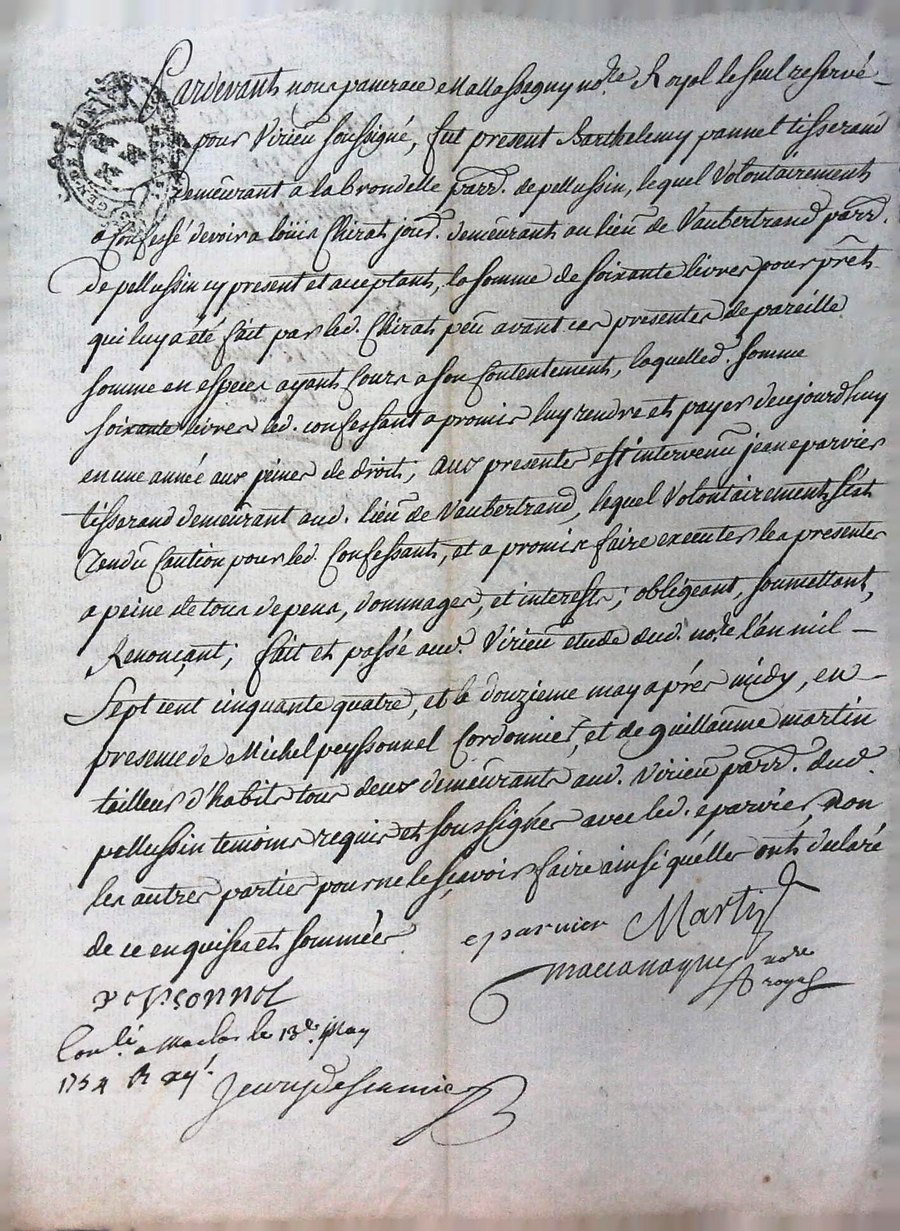 Pardevant nous pancrace Mallassagny no.re Royal le seul reservé
pour Virieu soussigné, fut present Barthelemy pannel tisserand
demeurant a la brondelle parr. de pellussin, lequel Volontairement
a Confessé devoir a loüis Chirat jour. demeurant au lieu de Vaubertrand parr.
de pellussin cy present et acceptant, la somme de soixante livres pour prêt
qui luy a été fait par led. Chirat peu avant ces presentes de pareille
somme en especes ayant Cours a son Contentement, laquelled. somme
soixante livres led. confessant a promis luy rendre et payer de cejourdhuy
en une année aux peines de droit; aux presentes est intervenu jean eparvier
tisserand demeurant aud. lieu de Vaubertrand, lequel Volontairement s'est
Rendu Caution pour led. Confessant, et a promis faire executer les presentes
a peine de tous depens, dommages, et interests; obligeant, soumettant,
Renonçant; fait et passé aud. Virieu etude dud. no.re l'an mil
Sept cent cinquante quatre, et le douzieme may aprés midy, en
presence de Michel peyssonnel Cordonnier, et de guillaume martin
tailleur d'habits tous deux demeurants aud. Virieu parr. dud.
pellussin temoins requis et soussignés avec led. eparvier, non
les autres parties pour ne le sçavoir faire ainsi qu'elles ont declaré
de ce enquises et sommées
eparvier Martin
no.re royal
peyssonnel
Con.lé a Maclas le 13.e May
1754 R